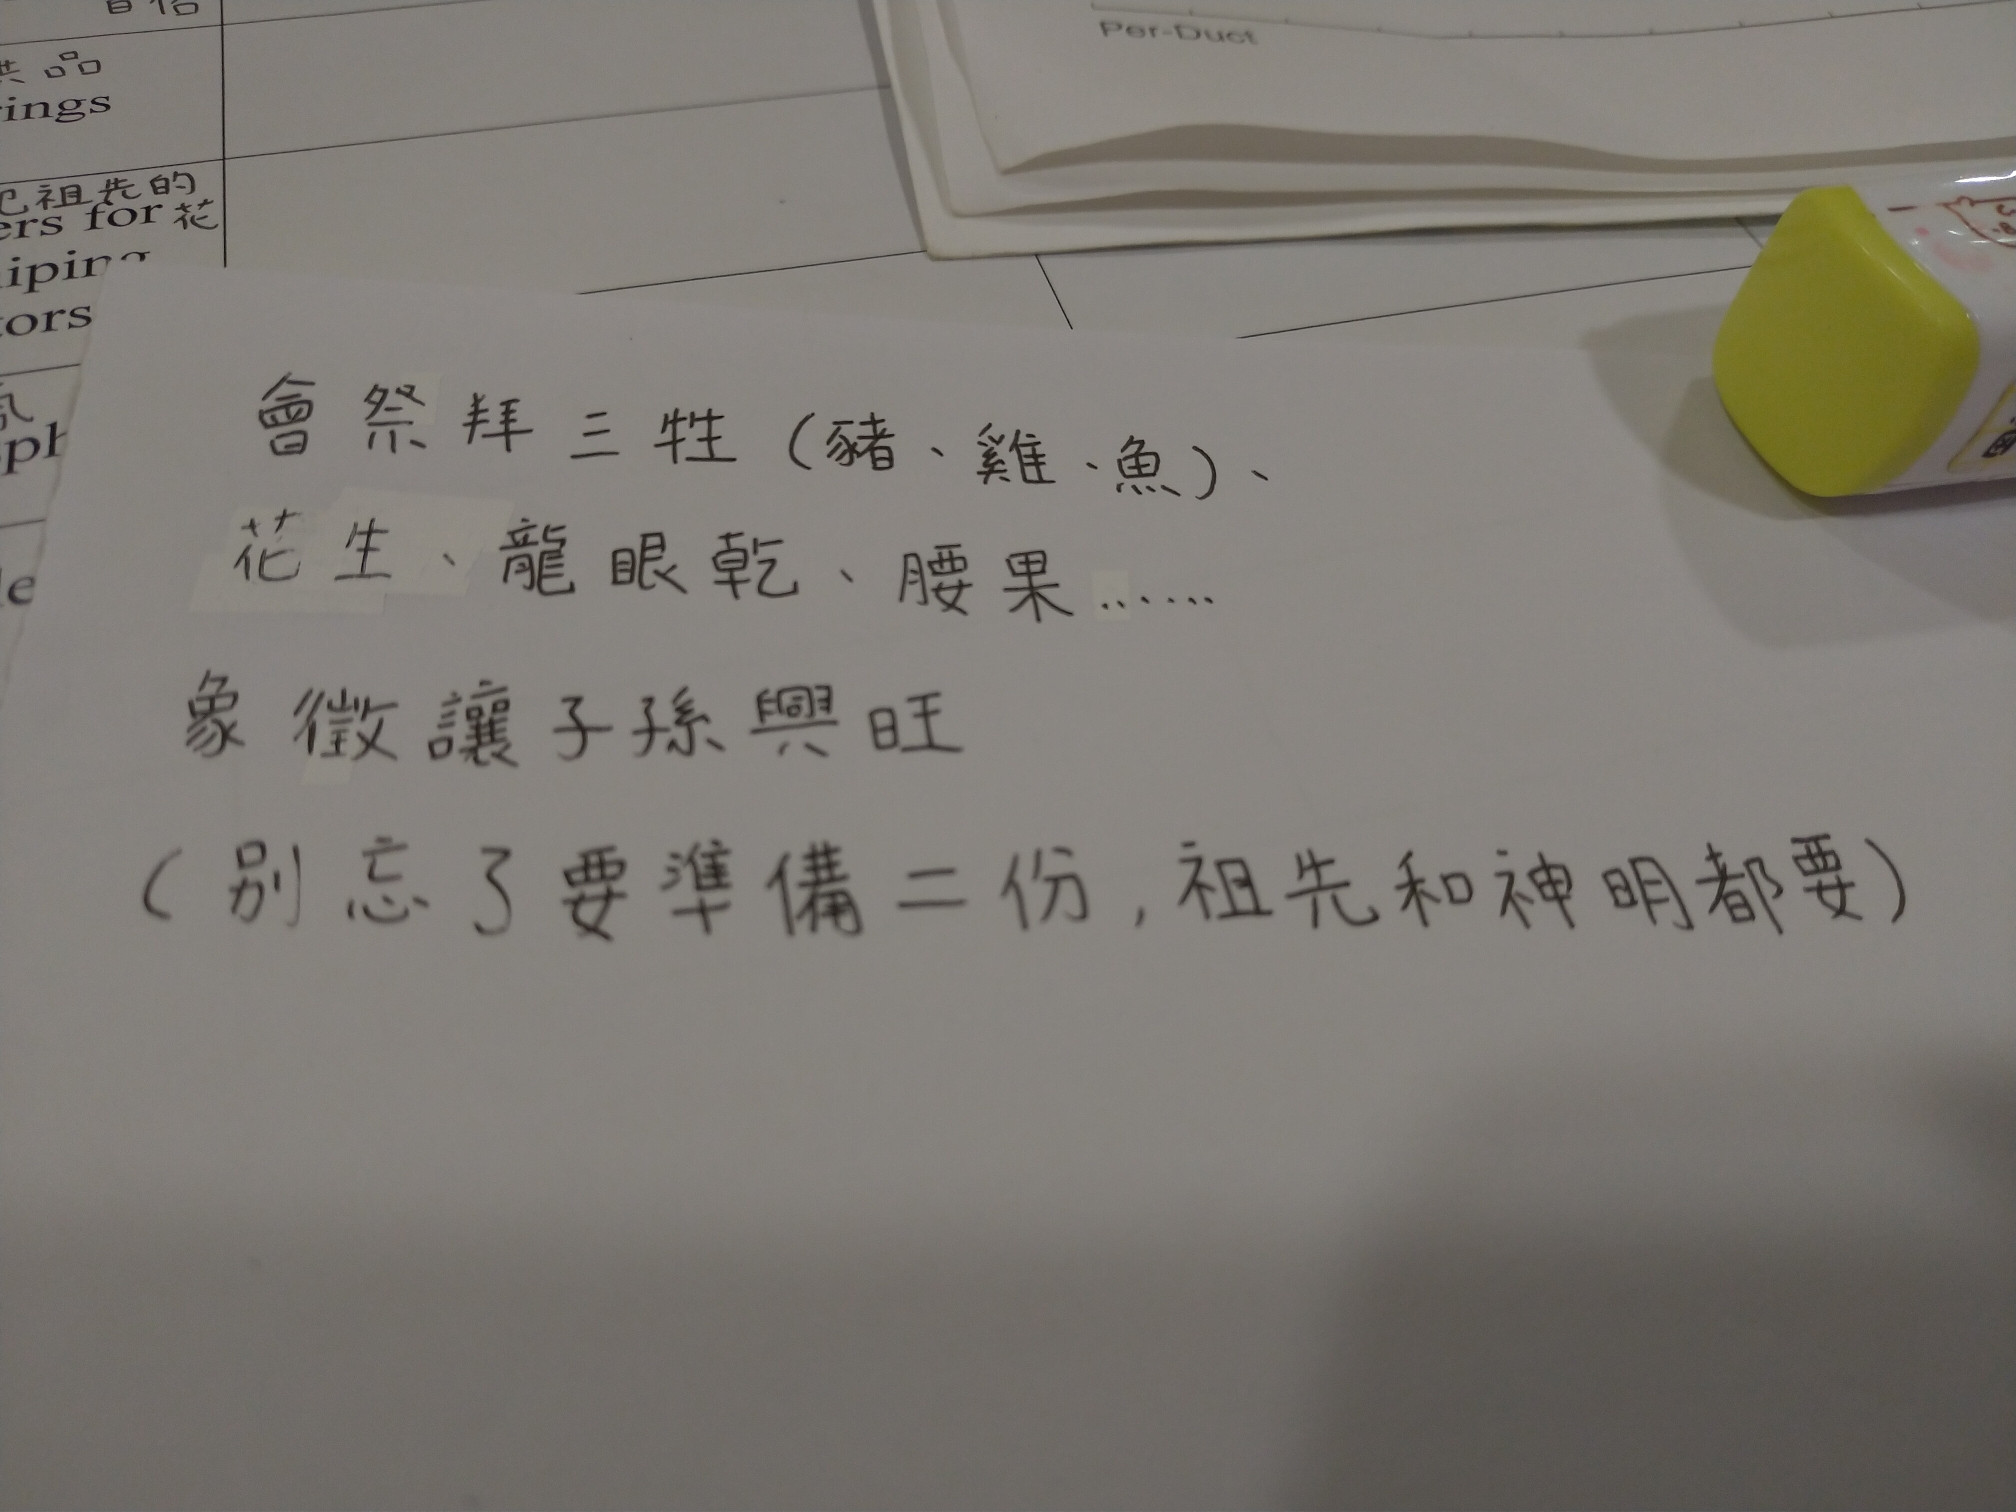 習俗
供品
rings
祖先的
ers for 花
tors
Per-Duct
會祭拜三牲（豬、雞、魚）、
花生、龍眼乾、腰果……
象徵讓子孫興旺
（別忘了要準備二份，祖先和神明都要）